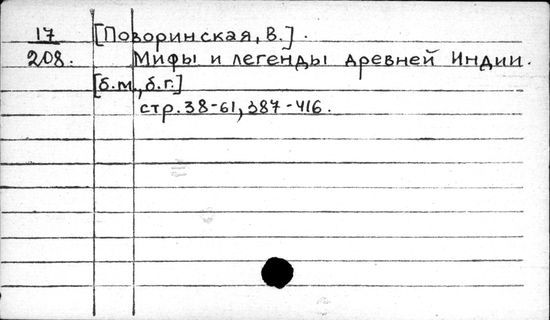 17 [Поворинская, В.].
208. Мифы и легенды древней Индии.
[б.м., б.г.]
стр. 38-61, 387-416.